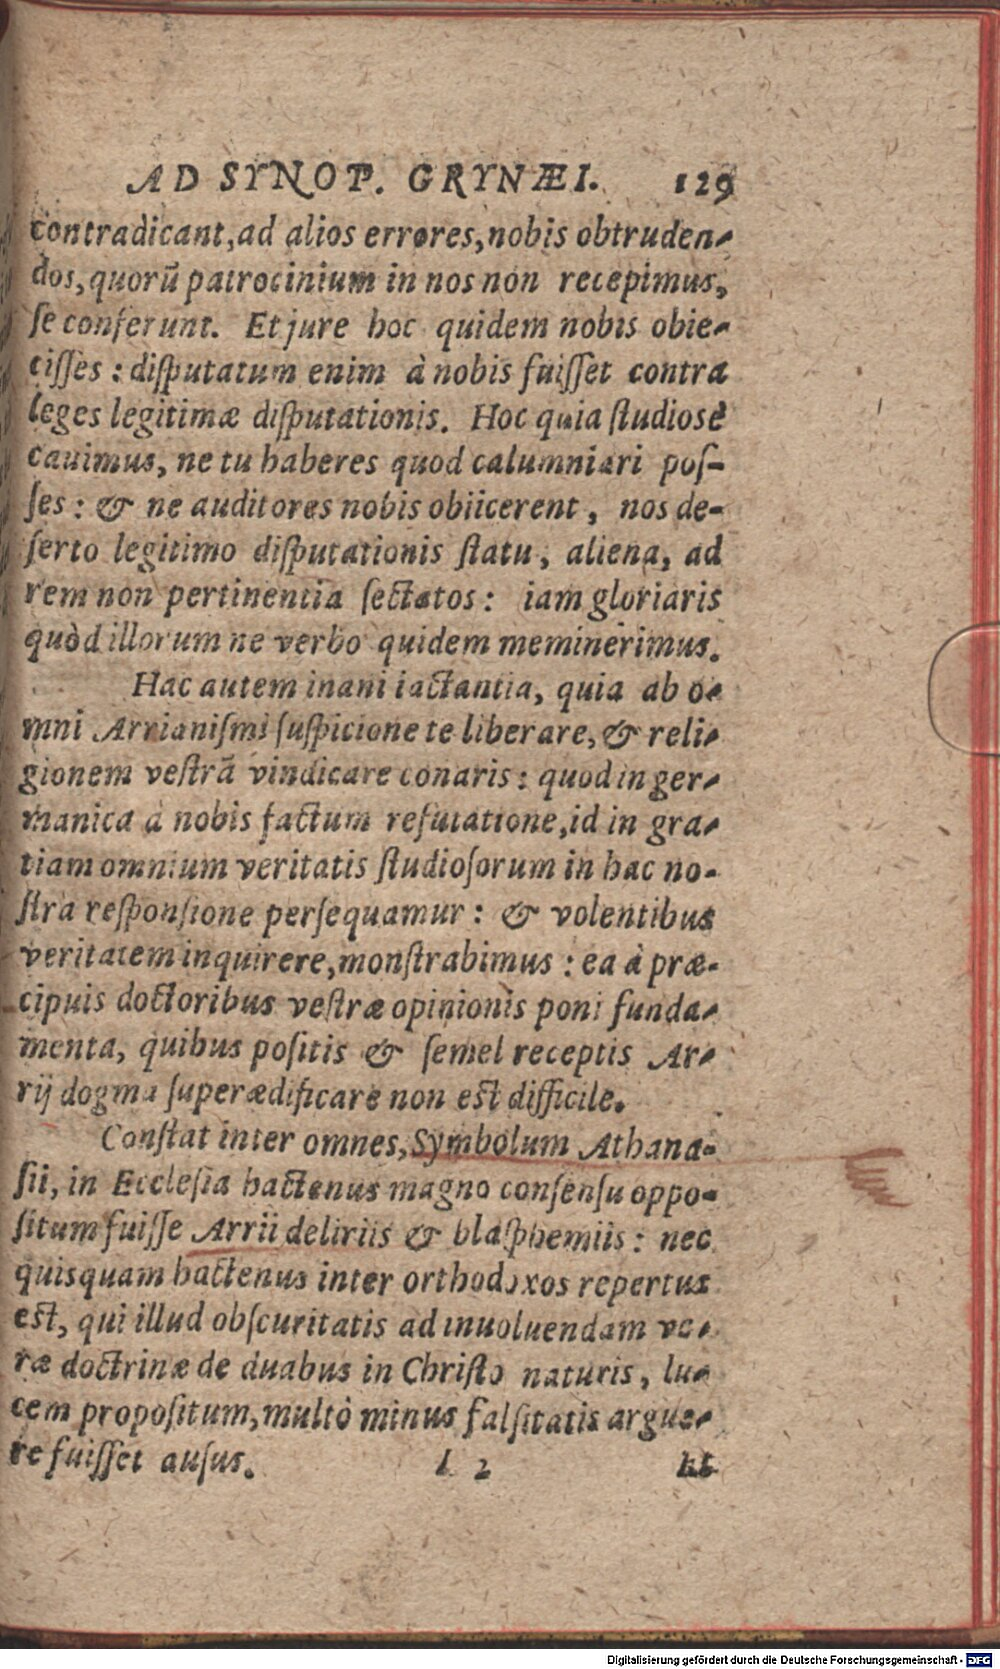 AD SYNOP. GRYNÆI. 129
contradicant, ad alios errores, nobis obtruden-
dos, quorũ patrocinium in nos non recepimus,
ſe conferunt. Et jure hoc quidem nobis obie-
ciſſes : diſputatum enim à nobis fuiſſet contra
leges legitimæ diſputationis. Hoc quia ſtudiosè
cauimus, ne tu haberes quod calumniari poſ-
ſes : & ne auditores nobis obiicerent, nos de-
ſerto legitimo diſputationis ſtatu, aliena, ad
rem non pertinentia ſectatos : iam gloriaris
quòd illorum ne verbo quidem meminerimus.
Hac autem inani iactantia, quia ab o-
mni Arrianiſmi ſuſpicione te liberare, & reli-
gionem veſtrã vindicare conaris : quod in ger-
manica à nobis factum refutatione, id in gra-
tiam omnium veritatis ſtudioſorum in hac no-
ſtra reſponſione perſequamur : & volentibus
veritatem inquirere, monſtrabimus : ea à præ-
cipuis doctoribus veſtræ opinionis poni funda-
menta, quibus poſitis & ſemel receptis Ar-
rij dogma ſuperædificare non eſt difficile.
Conſtat inter omnes, Symbolum Athana-
ſii, in Eccleſia hactenus magno conſenſu oppo-
ſitum fuiſſe Arrii deliriis & blaſphemiis : nec
quisquam hactenus inter orthodoxos repertus
eſt, qui illud obſcuritatis ad inuoluendam ve-
ræ doctrinæ de duabus in Chriſto naturis, lu-
cem propoſitum, multò minus falſitatis argue-
re fuiſſet auſus.
l 2 kt
Digitalisierung gefördert durch die Deutsche Forschungsgemeinschaft - DFG